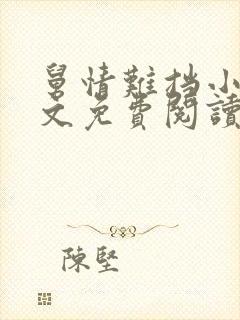 舅情難挡小
文免費閱讀
陳堅